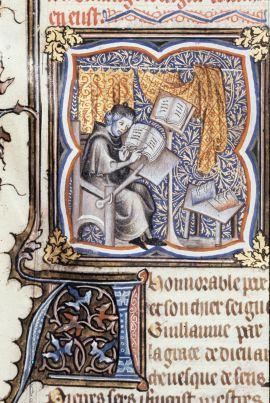 en eust.
A honnorable per
et son chier seign
Guillaume par
la grace de dieu ar
cheuesque de sens